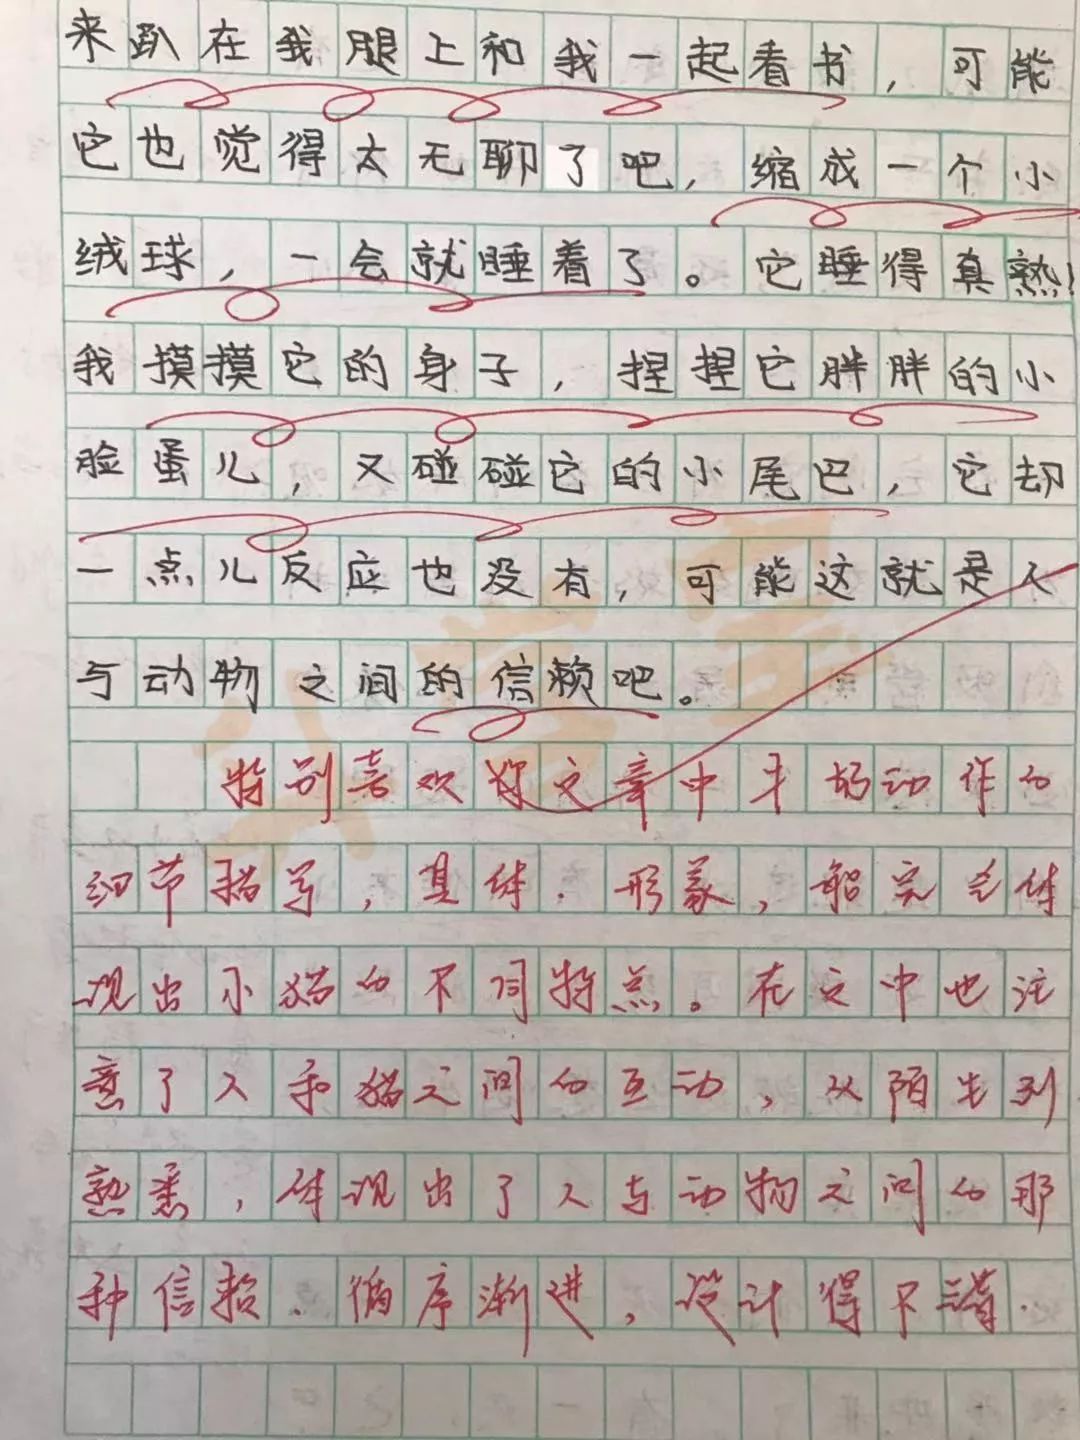 来趴在我腿上和我一起看书，可能
它也觉得太无聊了吧，缩成一个小
绒球，一会就睡着了。它睡得真熟！
我摸摸它的身子，捏捏它胖胖的小
脸蛋儿，又碰碰它的小尾巴，它却
一点儿反应也没有，可能这就是人
与动物之间的信赖吧。
特别喜欢你文章中的动作的
细节描写，具体、形象，能完全体
现出小猫的不同特点。在文中也注
意了人和猫之间的互动，从陌生到
熟悉，体现出了人与动物之间的那
种信赖。循序渐进，设计得不错。